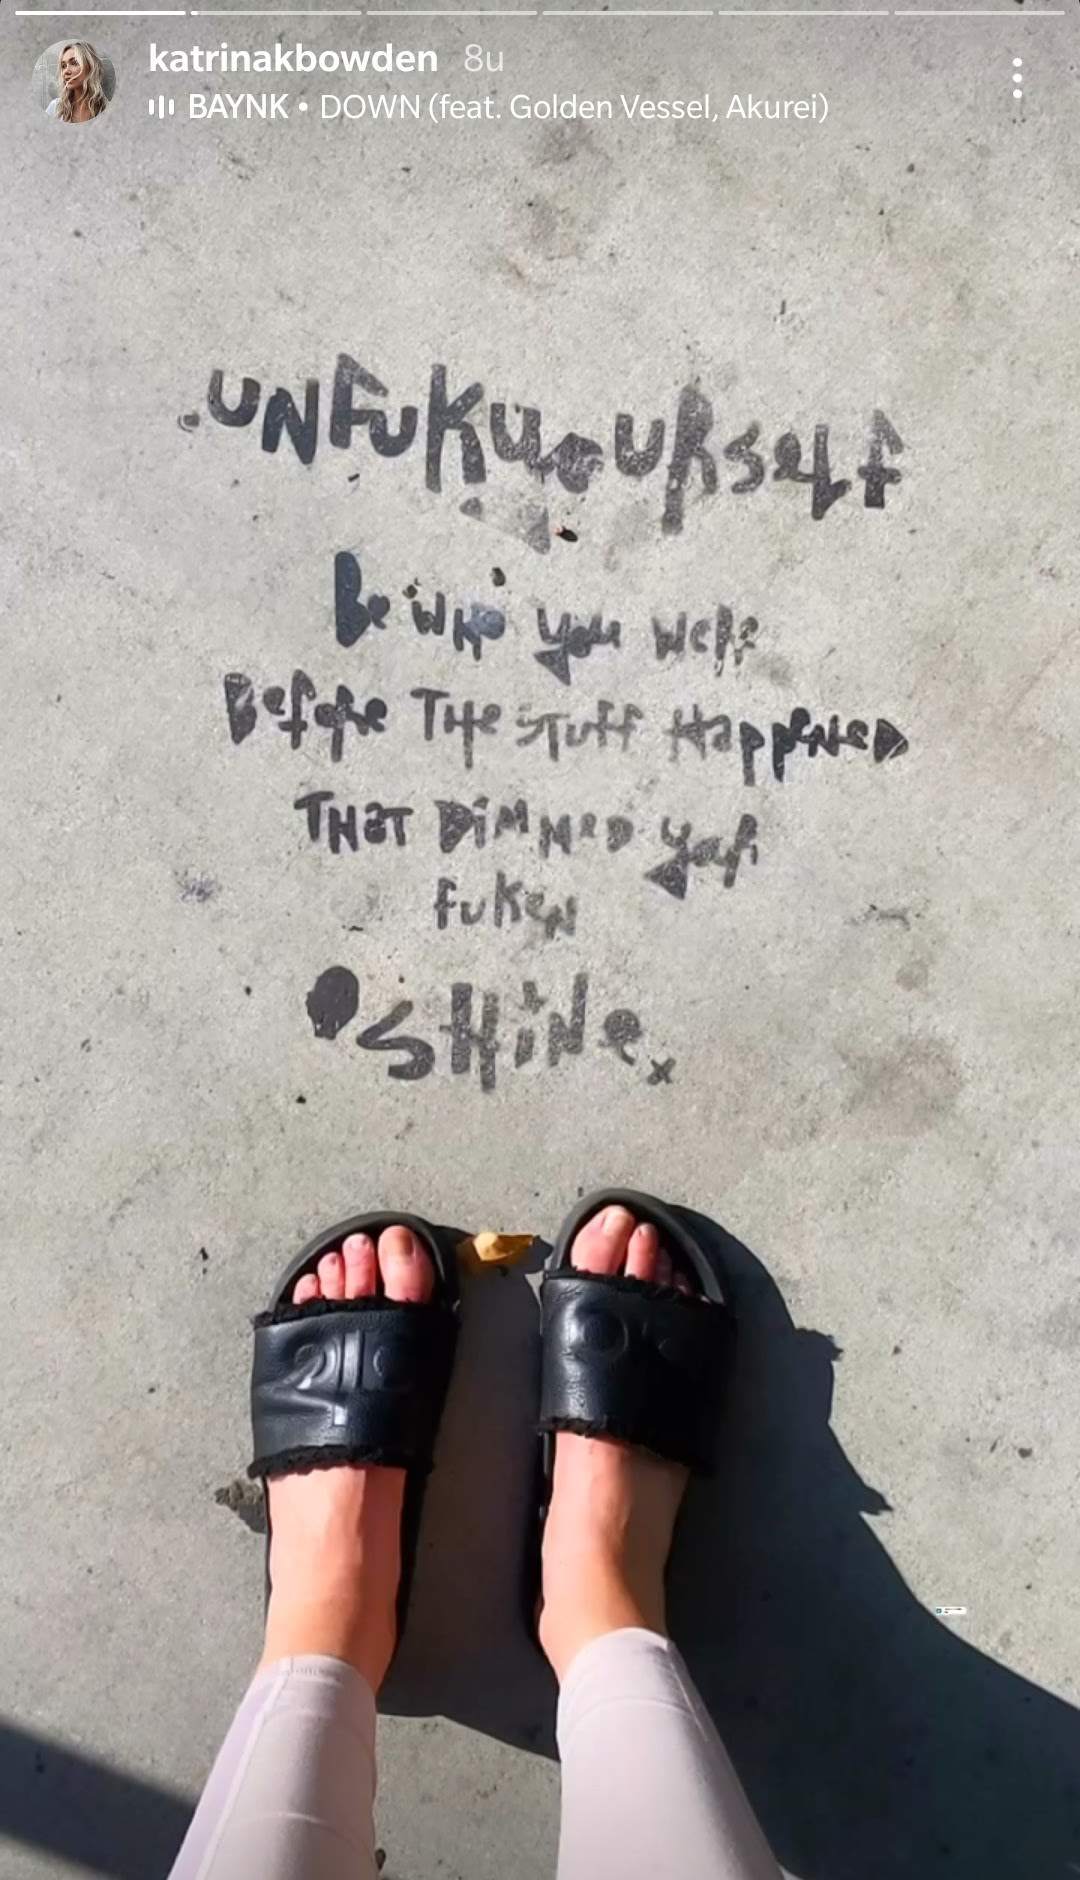 katrinakbowden 8u
BAYNK • DOWN (feat. Golden Vessel, Akurei)
UNFUKUOURSELF
Be WHO you weRe
BefoRe THe STUff HappeNeD
THaT DiMMeD YaR
fuKeN
SHiNe x
210